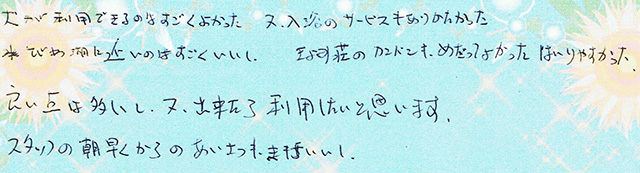 犬が利用できるのはすごくよかった 又、入浴のサービスもありがたかった
ひめ湖に近いのはすごくいいし、 荘のカンバンも、めだってよかった はいりやすかった、
良い点は多いし、又、出来たら利用したいと思います。
スタッフの朝早くからのあいさつも いいし、